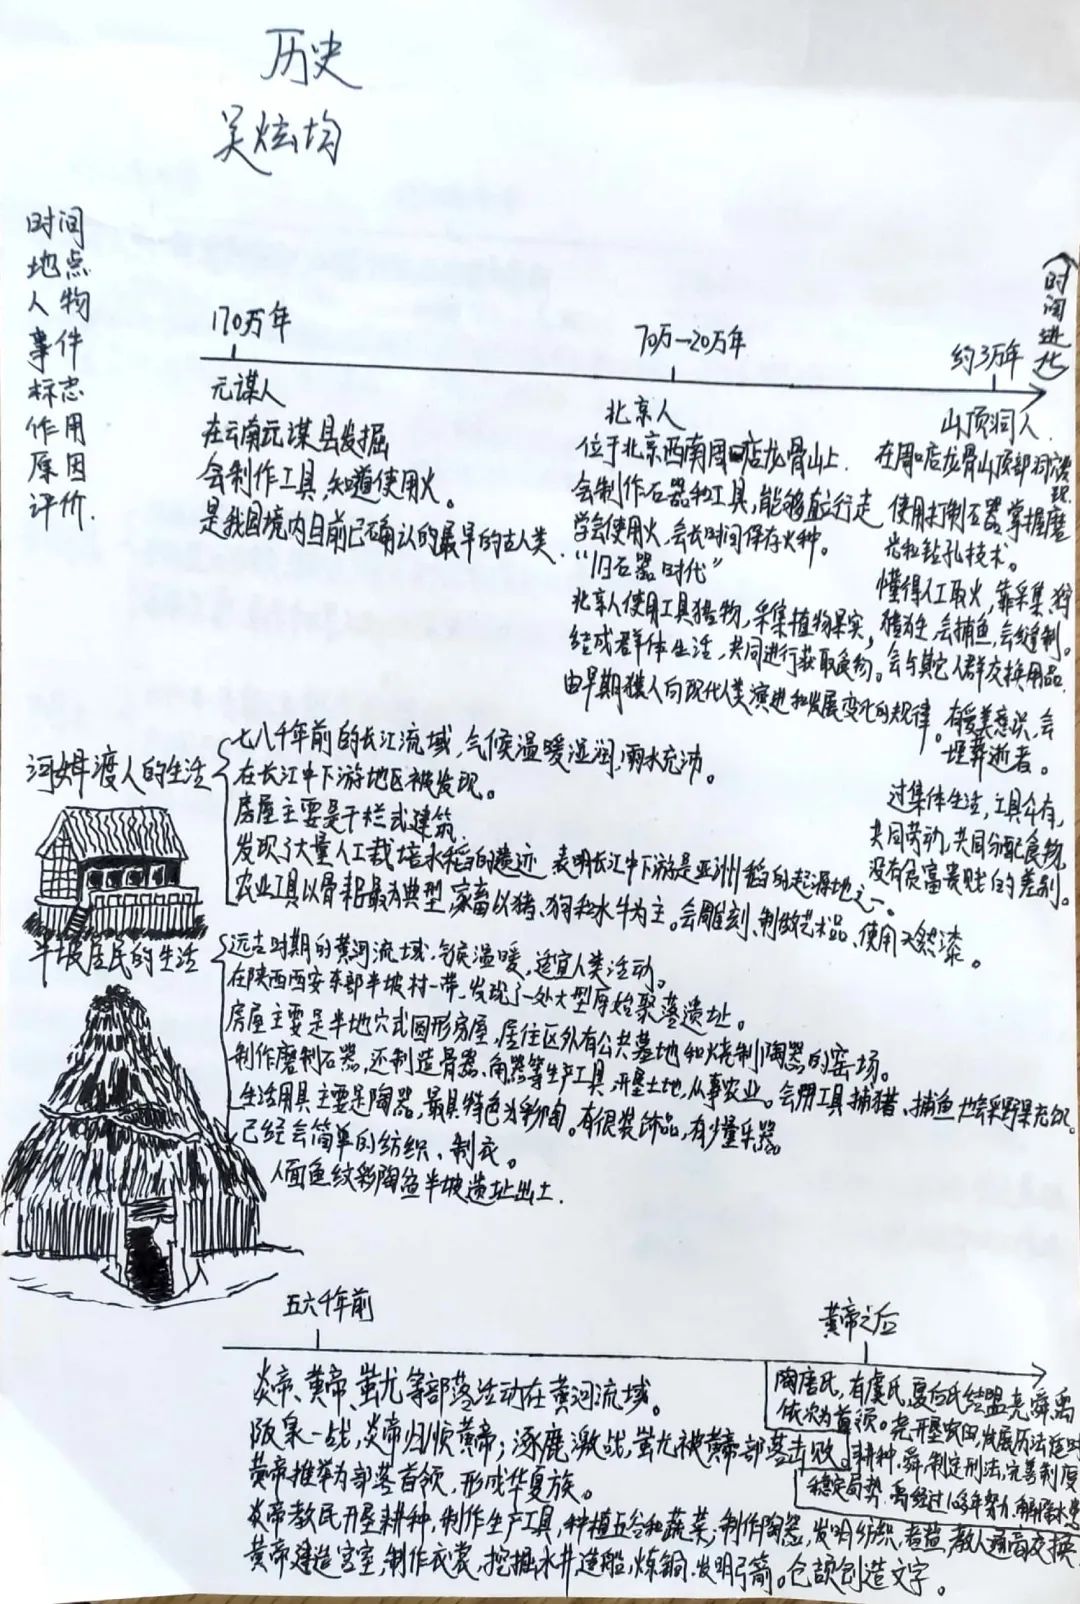 历史
吴炫均
时间
地点
人物
事件
标志
作用
原因
评价.
(时间进化)
170万年
70万-20万年
约3万年
元谋人
在云南元谋县发掘
会制作工具,知道使用火。
是我国境内目前已确认的最早的古人类.
北京人
位于北京西南周口店龙骨山上.
会制作石器和工具,能够直行走
学会使用火,会长时间保存火种。
“旧石器时代”
北京人使用工具猎物,采集植物果实,
结成群体生活,共同进行获取食物。
由早期猿人向现代人类演进和发展变化的规律。
山顶洞人.
在周口店龙骨山顶部洞穴发现.
使用打制石器,掌握磨
光和钻孔技术。
懂得人工取火,靠采集,狩
猎为生,会捕鱼,会缝制。
会与其它人群交换用品.
有爱美意识,会
埋葬逝者。
过集体生活,工具公有,
共同劳动,共同分配食物,
没有贫富贵贱的差别。
河姆渡人的生活
七八千年前的长江流域,气候温暖湿润,雨水充沛。
在长江中下游地区被发现。
房屋主要是干栏式建筑.
发现了大量人工栽培水稻的遗迹 表明长江中下游是亚洲稻的起源地之一。
农业工具以骨耜最为典型,家畜以猪、狗和水牛为主。会雕刻、制做艺术品、使用天然漆。
半坡居民的生活
远古时期的黄河流域,气候温暖,适宜人类活动。
在陕西西安东部半坡村一带,发现了一处大型原始聚落遗址。
房屋主要是半地穴式圆形房屋,居住区外有公共墓地和烧制陶器的窑场。
制作磨制石器,还制造骨器、角器等生产工具,开垦土地,从事农业。会用工具捕猎、捕鱼也会采野果充饥。
生活用具主要是陶器,最具特色为彩陶。有很装饰品,有少量乐器
已经会简单的纺织、制衣。
人面鱼纹彩陶鱼半坡遗址出土.
五六千年前
黄帝之后
炎帝、黄帝、蚩尤等部落活动在黄河流域。
阪泉一战,炎帝归顺黄帝;逐鹿激战,蚩尤被黄帝部落击败。
黄帝推举为部落首领,形成华夏族。
炎帝教民开垦耕种,制作生产工具,种植五谷和蔬菜;制作陶器,发明纺织,煮盐,教人通商交换.
黄帝建造宫室,制作衣裳,挖掘水井,造船,炼铜,发明弓箭。仓颉创造文字。
陶唐氏,有虞氏,夏后氏结盟尧舜禹
依次为首领。尧开垦农田,发展历法适时
耕种.舜,制定刑法,完善制度
稳定局势.禹经过10多年努力,解除水患